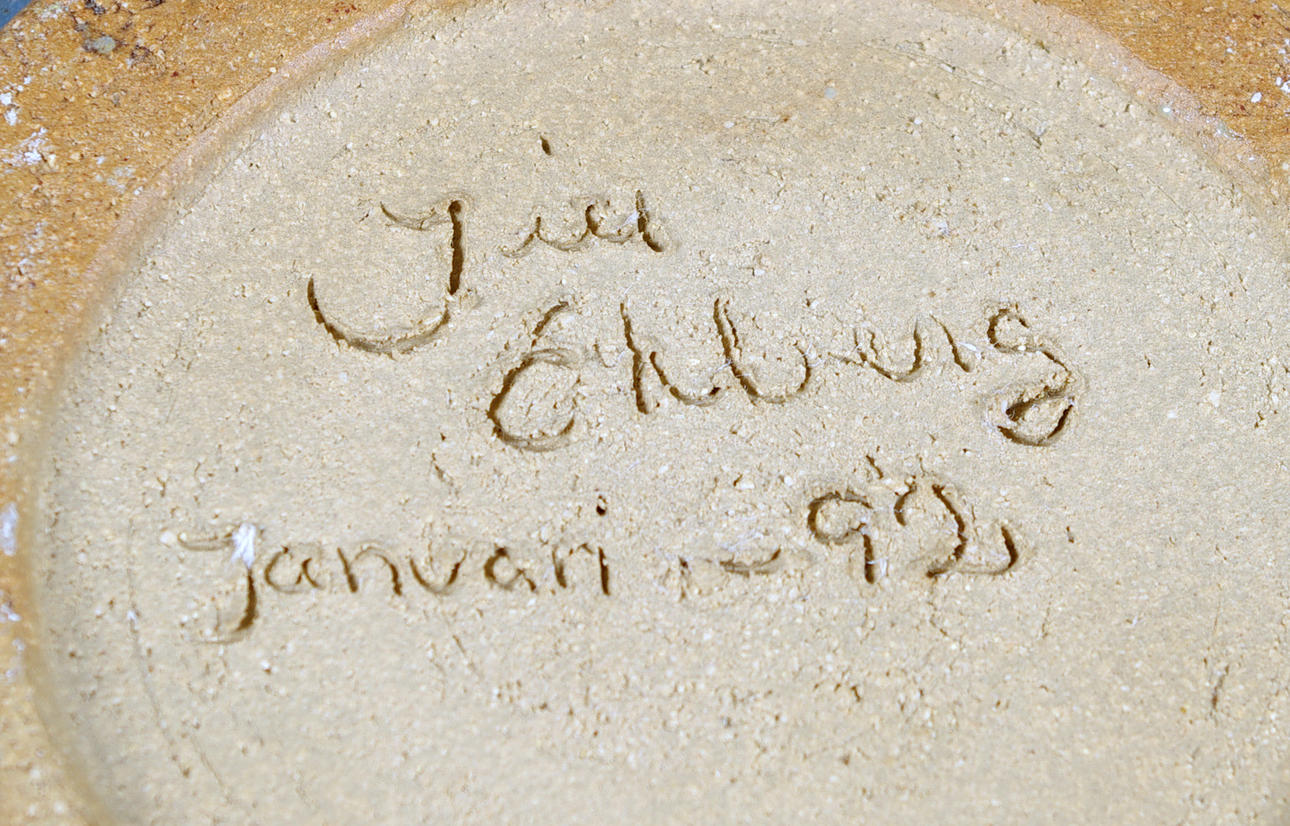 Jill
Ehlberg
Januari - 92